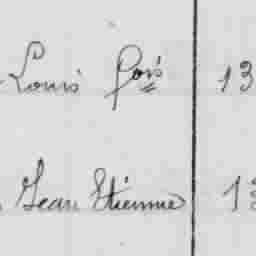 Louis fois 13
Jean Etienne 1